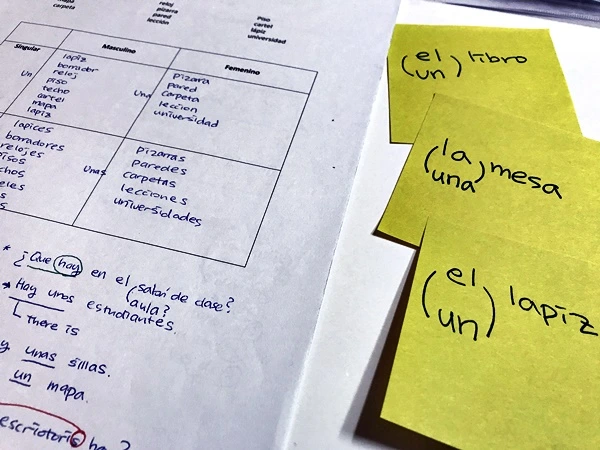 carpeta
reloj
pizarra
pared
lección
Piso
cartel
lápiz
universidad
Singular Masculino Femenino
Un
lapiz
borrador
reloj
piso
techo
cartel
mapa
lapiz
Una
pizara
pared
carpeta
leccion
universidad
lapices
borradores
relojes
Unas
pizarras
paredes
carpetas
lecciones
universidades
* ¿Que hay en el salón de clase?
(aula?
* Hay unos estudiantes.
There is
unas sillas.
un mapa.
(el
un) libro
(la
una) mesa
(el
un) lapiz